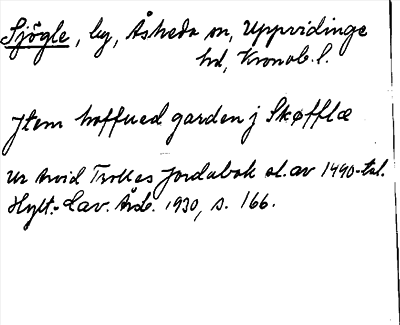 Sjögle, by, Åsheda sn, Uppvidinge
hd, Kronob. l.
Jtem hoffued garden j Skøfflæ
ur Arvid Trolles Jordabok sl. av 1490-tal.
Hylt.-Cav. Årsb. 1930, s. 166.